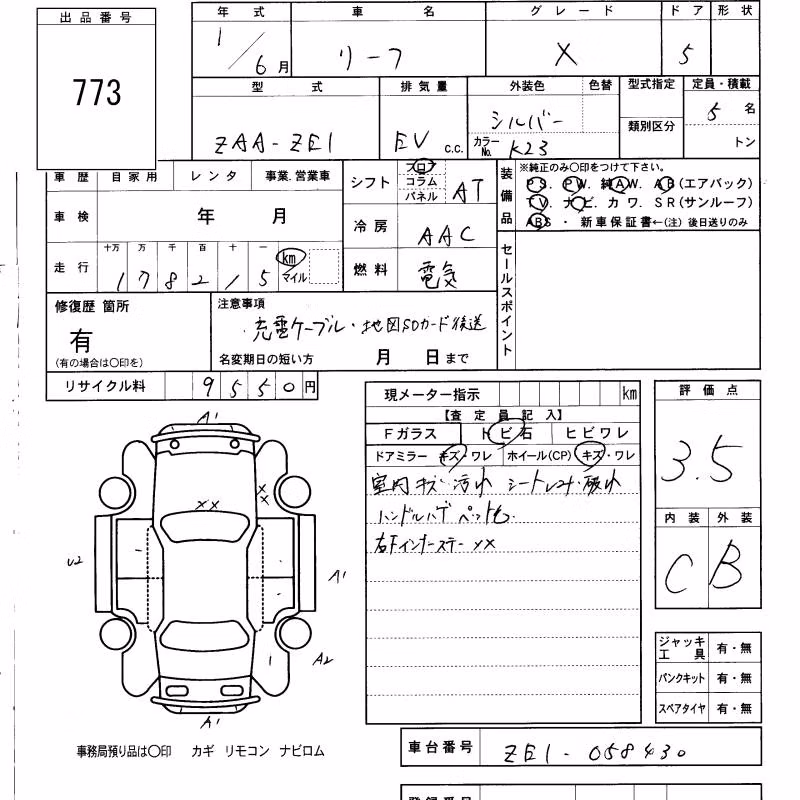 出品番号
773
年式 車名 グレード ドア 形状
1/6月 リーフ X 5
型式 排気量 外装色 色替 型式指定 定員・積載
ZAA-ZE1 EV c.c. シルバー 類別区分 5名
カラーNo. K23 トン
車歴 自家用 レンタ 事業.営業車
シフト フロア コラム パネル AT
装備品 ※純正のみ〇印をつけて下さい。
PS. PW. 純AW. AB(エアバック)
TV. ナビ. カワ. SR(サンルーフ)
ABS・新車保証書←(注)後日送りのみ
車検 年 月
冷房 AAC
走行 十万 万 千 百 十 一
178215 km マイル
燃料 電気
セールスポイント
修復歴 箇所
有
(有の場合は〇印を)
注意事項
充電ケーブル・地図SDカード後送
名変期日の短い方 月 日まで
リサイクル料 9550円
現メーター指示 km
【査定員記入】
Fガラス トビ石 ヒビワレ
ドアミラー キズ・ワレ ホイール(CP) キズ・ワレ
室内キズ・汚れ シート 破れ
ハンドルハゲ
右Fインナーステー XX
評価点
3.5
内装 外装
C B
A1
XX
XX
U2
A1
A2
A1
ジャッキ工具 有・無
パンクキット 有・無
スペアタイヤ 有・無
事務局預り品は〇印 カギ リモコン ナビロム
車台番号 ZE1-058430